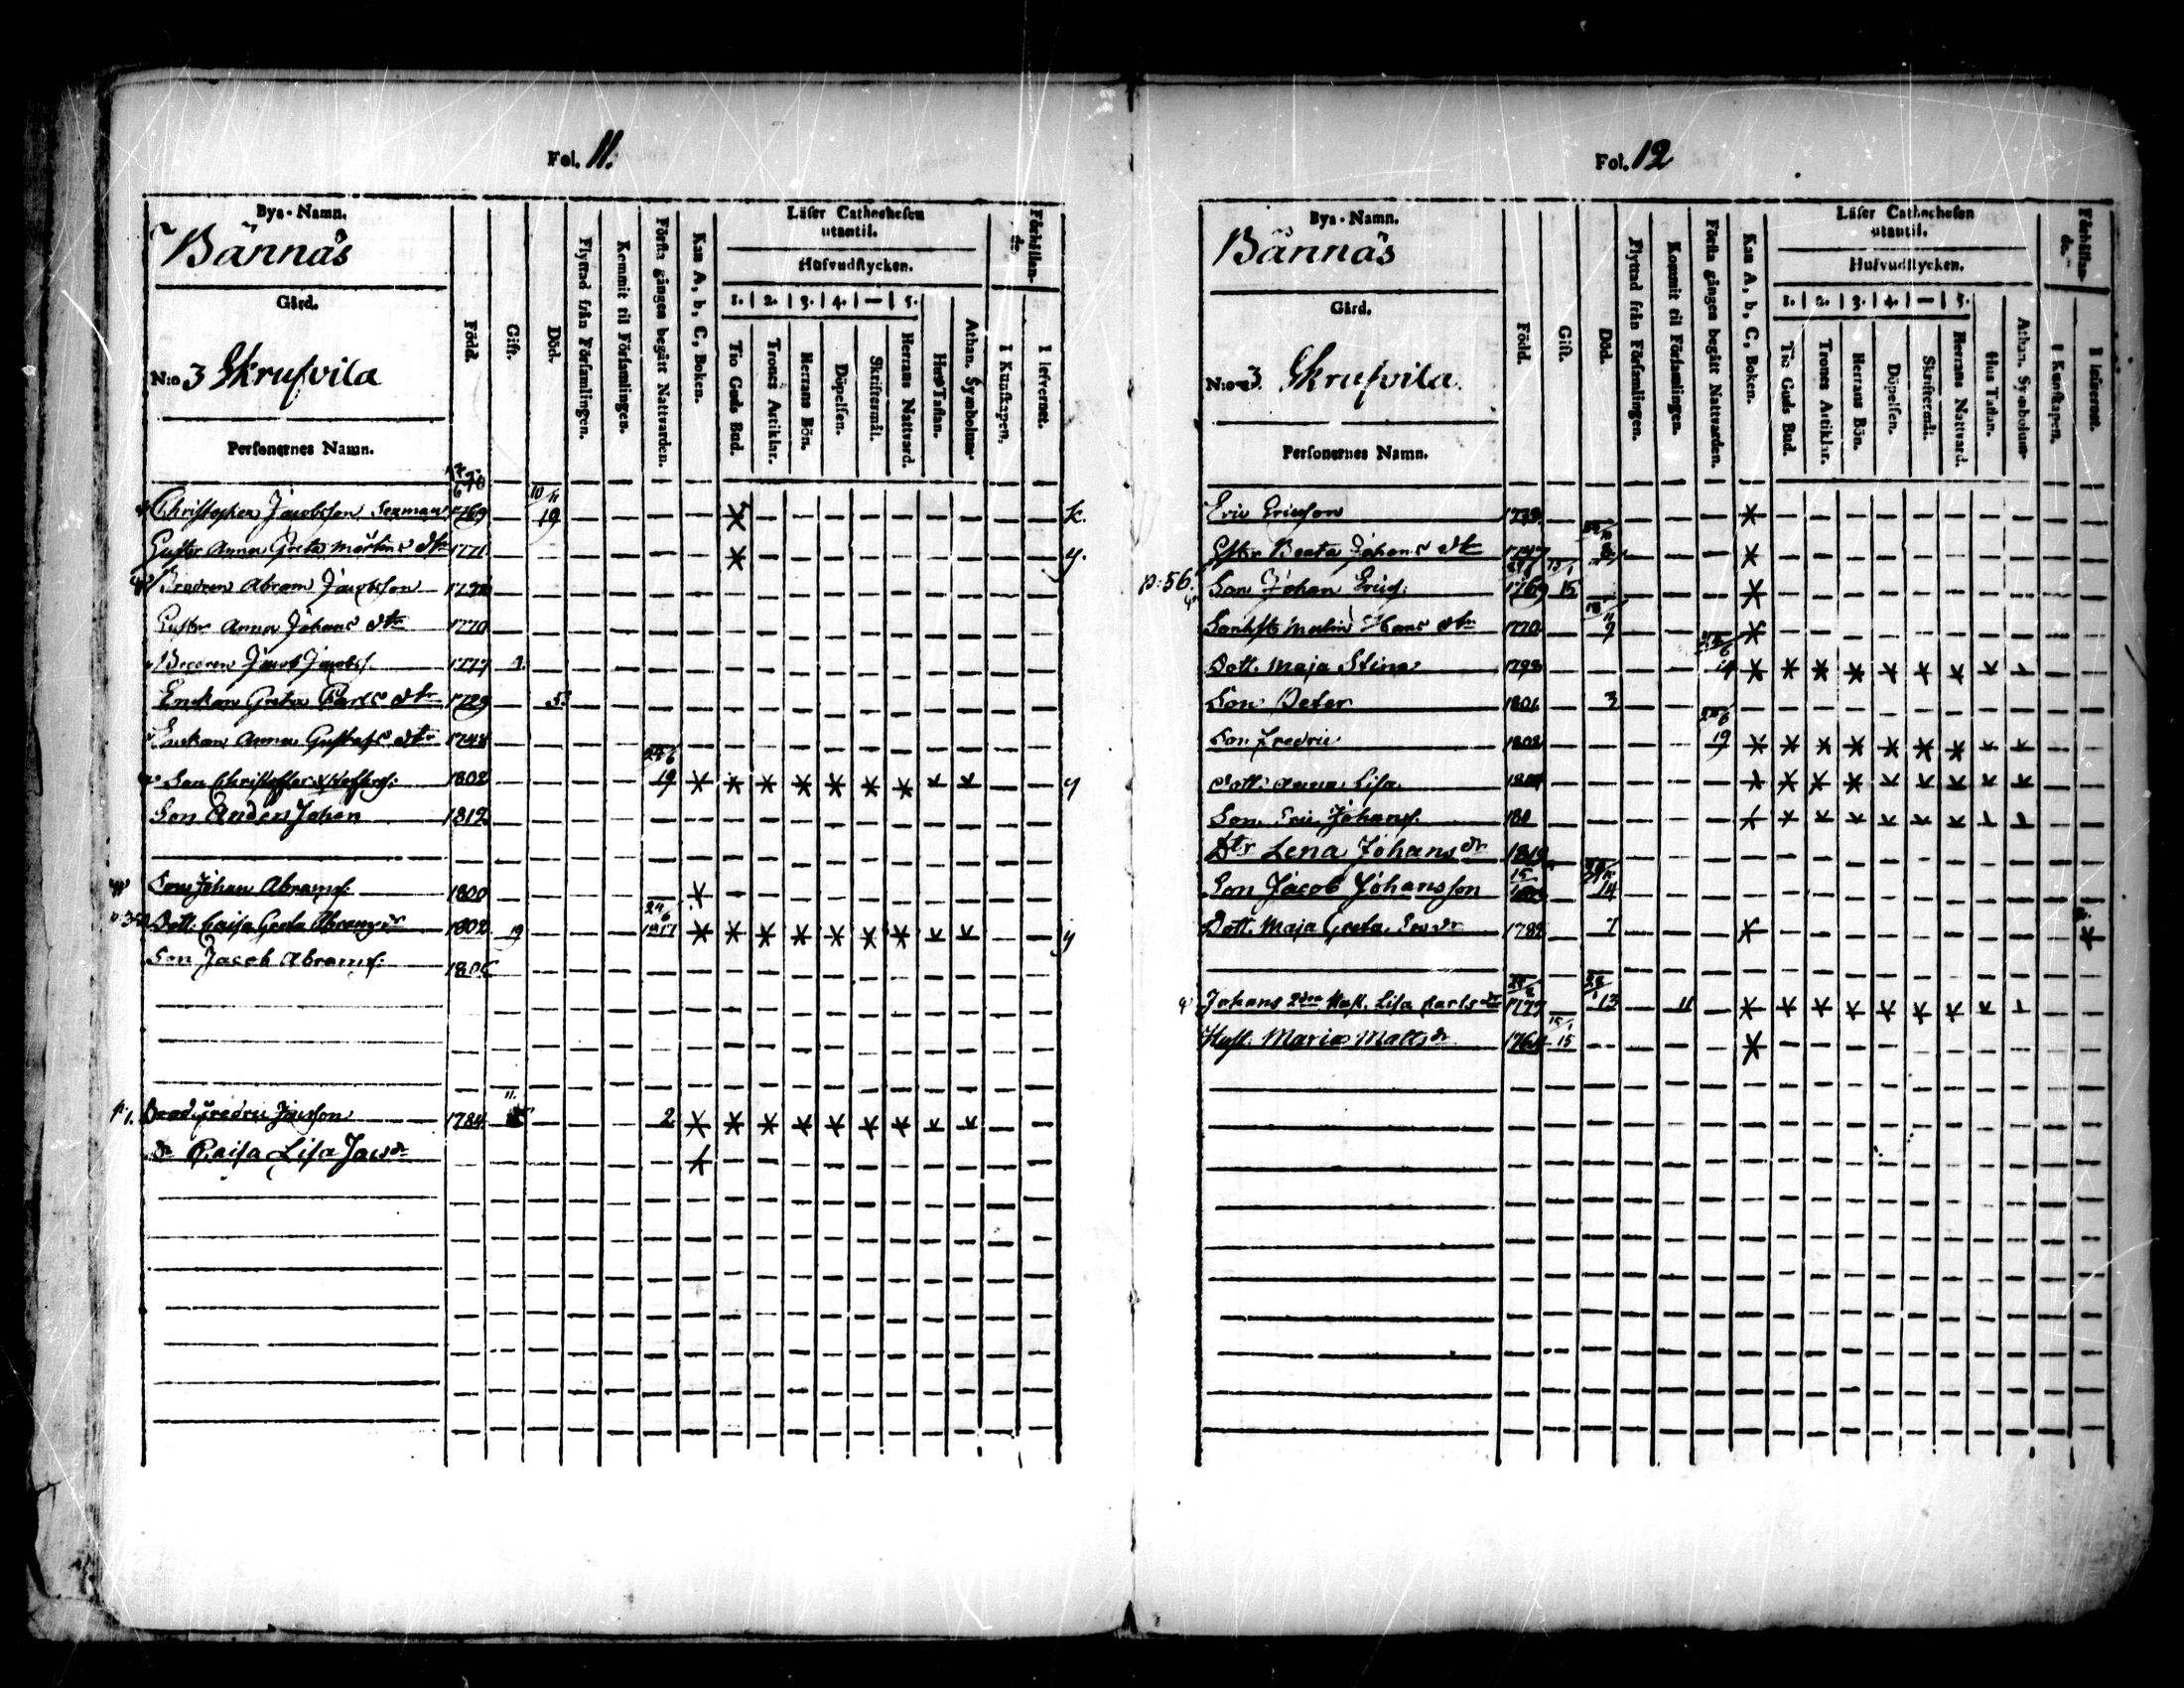 Fol. 11.
Bys-Namn.
Bännäs
Gård.
N:o 3 Skrufvila
Personernes Namn.
Född.
Gift.
Död.
Flyttad från Församlingen.
Kommit til Församlingen.
Första gången begått Nattvarden.
Kan A, b, C, Boken.
Läser Cathechesen utantil.
Hufvudstycken.
1. 2. 3. 4. — 5.
Tio Guds Bud.
Trones Artiklar.
Herrans Bön.
Döpelsen.
Skriftermål.
Herrans Nattvard.
Hus Taflan.
Athan. Symbolum
Förhållande.
I Kunskapen.
I lefvernet.
Christopher Jacobsson 1769 10/11 19 k.
Anna Greta Mårtens dtr 1771 y.
Brodren Abram Jacobsson
Anna Johans dtr 1770
Brodren Jacob Jacobs. 1777
Enckan Greta Carls dtr 1729 5.
Enckan Anna Gustafs dtr 1748
Son Christoffer 1802 24/6 19 y
Son Anders Johan 1812
Son Johan Abramss. 1800
Dott. Caisa Greta Abramsdr 1802 19 24/6 17 y
Son Jacob Abramss. 1805
Brod. Fredric Jacsson 1784 11. 2
dr Caisa Lisa Jacsdr
Fol. 12
Bys-Namn.
Bännäs
Gård.
N:o 3. Skrufvila.
Personernes Namn.
Född.
Gift.
Död.
Flyttad från Församlingen.
Kommit til Församlingen.
Första gången begått Nattvarden.
Kan A, b, C, Boken.
Läser Cathechesen utantil.
Hufvudstycken.
1. 2. 3. 4. — 5.
Tio Guds Bud.
Trones Artiklar.
Herrans Bön.
Döpelsen.
Skriftermål.
Herrans Nattvard.
Hus Taflan.
Athan. Symbolum
Förhållande.
I Kunskapen.
I lefvernet.
Eric Ericsson
Beata Johans dtr 1747
p: 56. Son Johan Erics. 1769 15/1 15
Malin Hans dtr 1770 7
Dott. Maja Stina 1798 14
Son Peter 1801 3
Son Fredric 1802 19
Dott. Anna Lisa
Son Eric Johanss.
Dtr Lena Johans dr 1819
Son Jacob Johansson 14
Dott. Maja Greta 7
Johans 2dra Hust. Lisa Carls dr 1777 13 11
Hust. Maria Matts dr 15/1 15